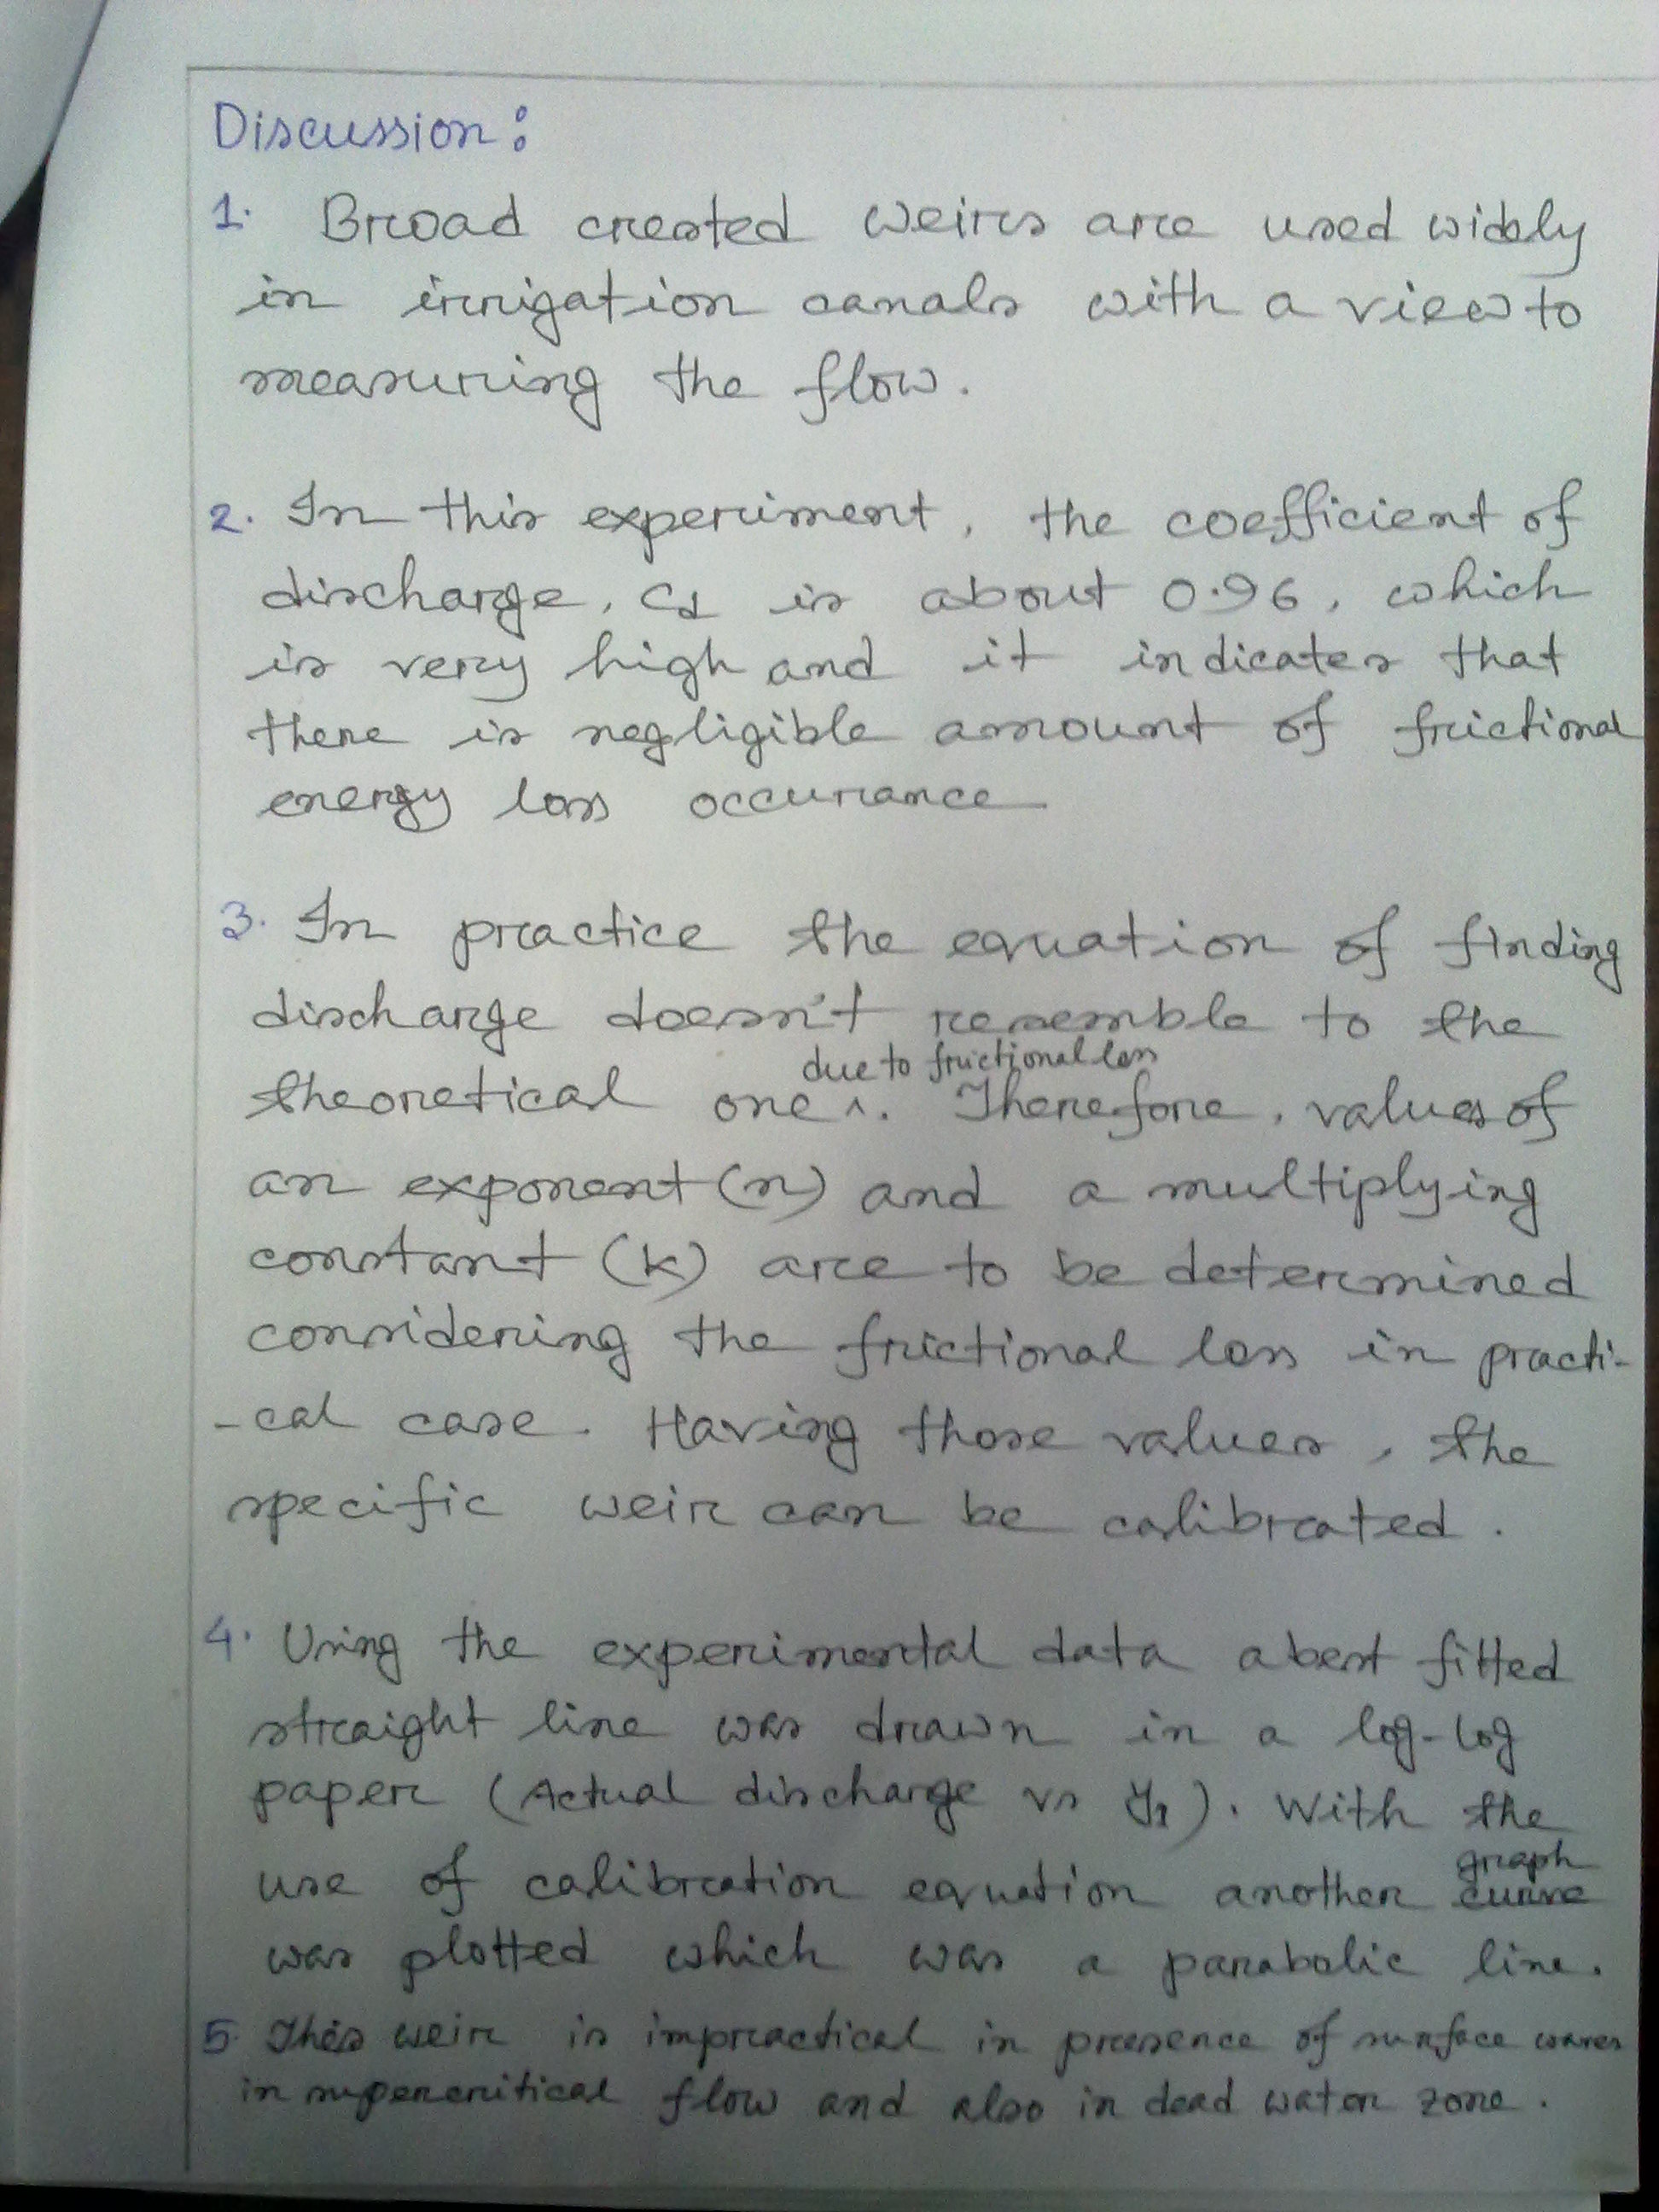 Discussion:
1. Broad crested weirs are used widely
in irrigation canals with a view to
measuring the flow.
2. In this experiment, the coefficient of
discharge, Cd is about 0.96, which
is very high and it indicates that
there is negligible amount of frictional
energy loss occurance
3. In practice the equation of finding
discharge doesn't resemble to the
due to frictional loss
theoretical one ^. Therefore, values of
an exponent (n) and a multiplying
constant (k) are to be determined
considering the frictional loss in practi-
-cal case. Having those values, the
specific weir can be calibrated.
4. Using the experimental data a best fitted
straight line was drawn in a log-log
paper (Actual discharge vs y1). With the
graph
use of calibration equation another curve
was plotted which was a parabolic line.
5. This weir is impractical in presence of surface waves
in supercritical flow and also in dead water zone.